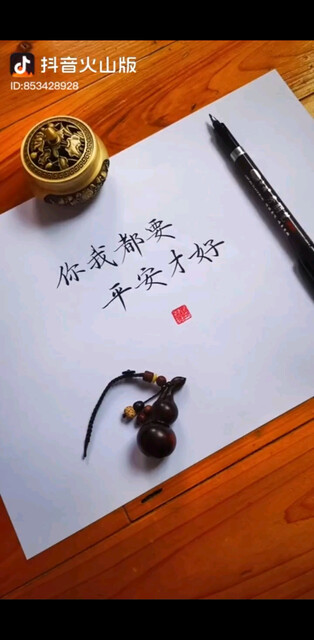 抖音火山版
ID:853428928
你我都要
平安才好